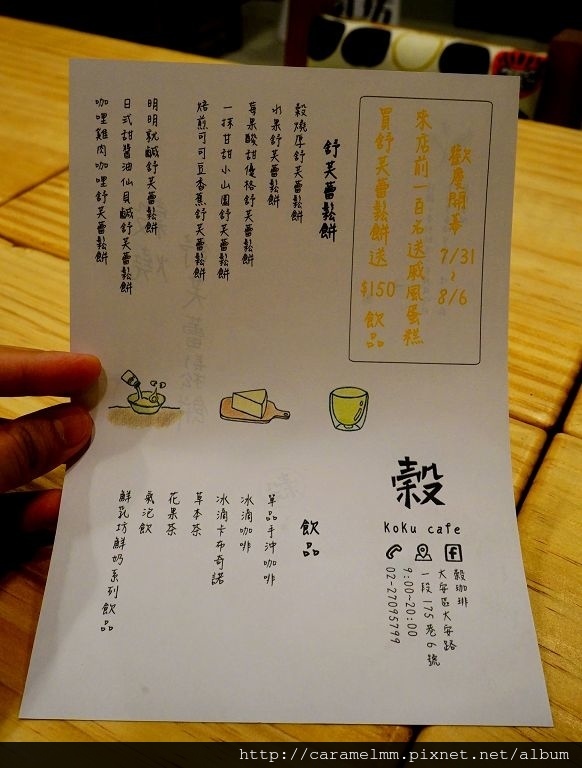 歡慶開幕 7/31~8/6
來店前一百名送戚風蛋糕
買舒芙蕾鬆餅送$150飲品
舒芙蕾鬆餅
穀燒厚舒芙蕾鬆餅
水果舒芙蕾鬆餅
莓果酸甜優格舒芙蕾鬆餅
一抹甘甜小山園舒芙蕾鬆餅
焙煎可可豆香蕉舒芙蕾鬆餅
明明就鹹舒芙蕾鬆餅
日式甜醬油仙貝鹹舒芙蕾鬆餅
咖哩雞肉咖哩舒芙蕾鬆餅
穀
KoKu cafe
穀珈琲
大安區大安路
一段175巷6號
9:00~20:00
02-27095799
飲品
單品手沖咖啡
冰滴咖啡
冰滴卡布奇諾
草本茶
花果茶
氣泡飲
鮮乳坊鮮奶系列飲品
http://caramelmm.pixnet.net/album